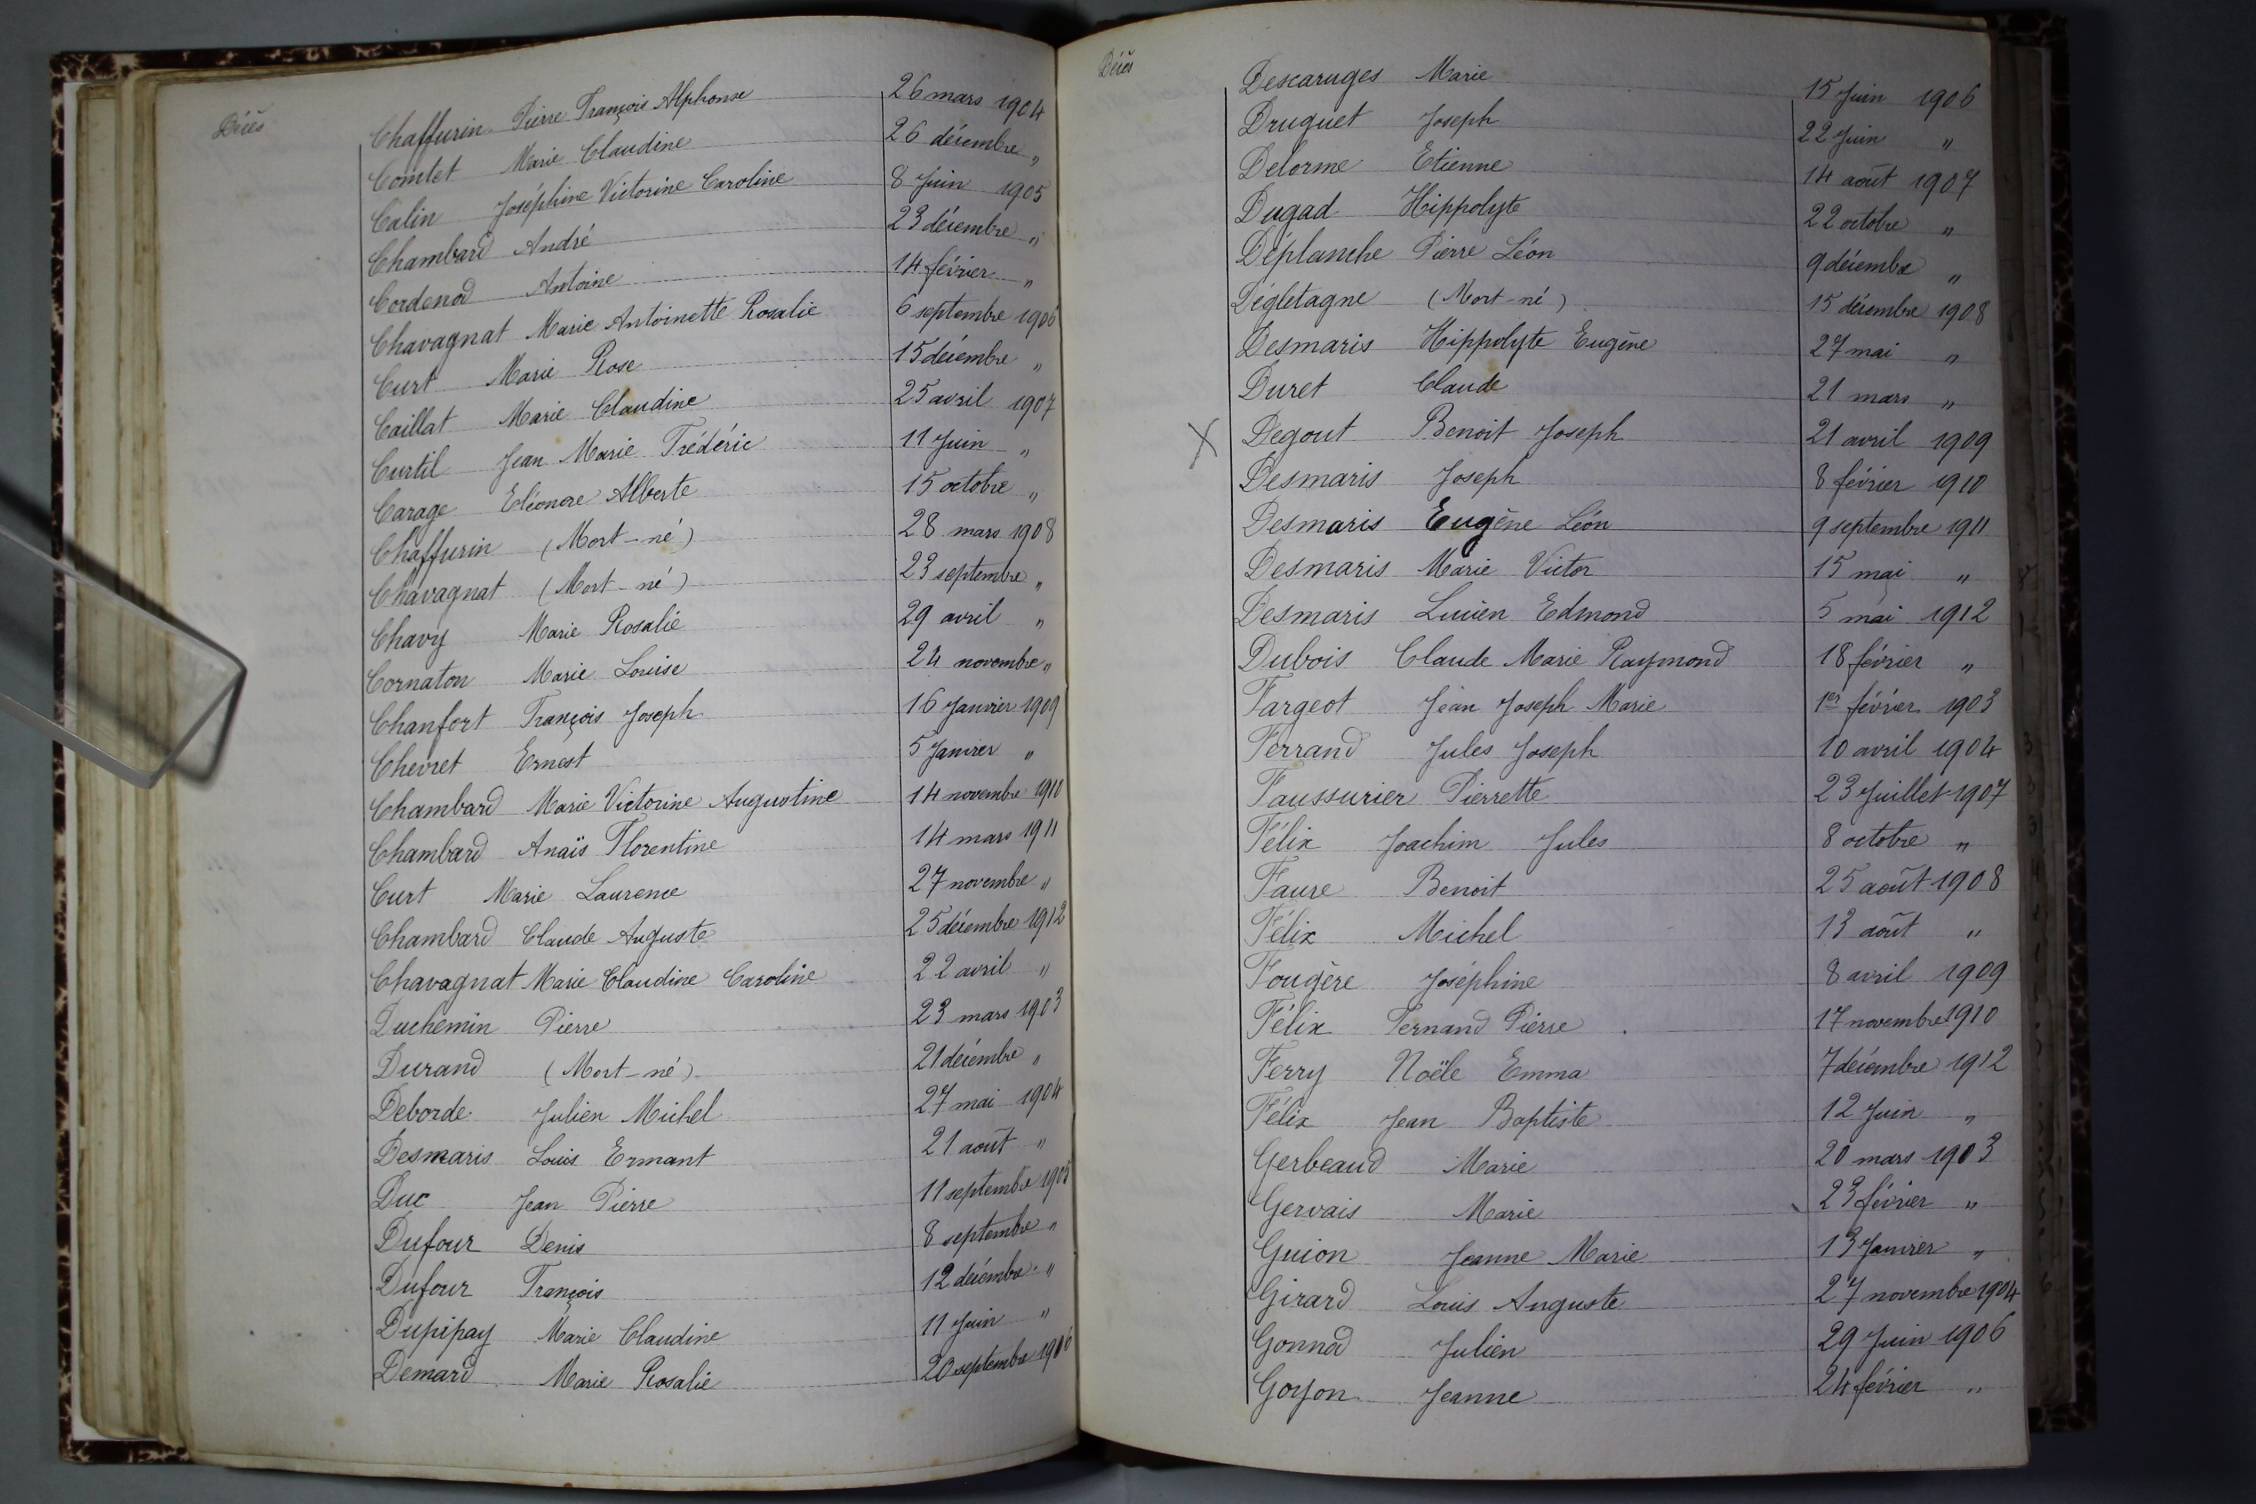 Décès
Chaffurin Pierre François Alphonse 26 mars 1904
Comtet Marie Claudine 26 décembre "
Calin Joséphine Victorine Caroline 8 Juin 1905
Chambard André 23 décembre "
Cordenod Antoine 14 février "
Chavagnat Marie Antoinette Rosalie 6 septembre 1906
Curt Marie Rose 15 décembre "
Caillat Marie Claudine 25 avril 1907
Curtil Jean Marie Frédéric 11 Juin "
Carage Eléonore Alberte 15 octobre "
Chaffurin (Mort-né) 28 mars 1908
Chavagnat (Mort-né) 23 septembre "
Chavy Marie Rosalie 29 avril "
Cornaton Marie Louise 24 novembre "
Chanfort François Joseph 16 Janvier 1909
Chevret Ernest 5 Janvier "
Chambard Marie Victorine Augustine 14 novembre 1910
Chambard Anaïs Florentine 14 mars 1911
Curt Marie Laurence 27 novembre "
Chambard Claude Auguste 25 décembre 1912
Chavagnat Marie Claudine Caroline 22 avril "
Duchemin Pierre 23 mars 1903
Durand (Mort-né) 21 décembre "
Deborde Julien Michel 27 mai 1904
Desmaris Louis Ermant 21 août "
Duc Jean Pierre 11 septembre 1905
Dufour Denis 8 septembre "
Dufour François 12 décembre "
Dupipay Marie Claudine 11 Juin "
Demard Marie Rosalie 20 septembre 1906
Décès
Descaruges Marie 15 Juin 1906
Druguet Joseph 22 Juin "
Delorme Etienne 14 août 1907
Dugad Hippolyte 22 octobre "
Déplanche Pierre Léon 9 décembre "
Dégletagne (Mort-né) 15 décembre 1908
Desmaris Hippolyte Eugène 27 mai "
Duret Claude 21 mars "
X Degout Benoit Joseph 21 avril 1909
Desmaris Joseph 8 février 1910
Desmaris Eugène Léon 9 septembre 1911
Desmaris Marie Victor 15 mai "
Desmaris Lucien Edmond 5 mai 1912
Dubois Claude Marie Raymond 18 février "
Fargeot Jean Joseph Marie 1er février 1903
Ferrand Jules Joseph 10 avril 1904
Faussurier Pierrette 23 Juillet 1907
Félix Joachim Jules 8 octobre "
Faure Benoit 25 août 1908
Félix Michel 13 août "
Fougère Joséphine 8 avril 1909
Félix Fernand Pierre 17 novembre 1910
Ferry Noële Emma 7 décembre 1912
Félix Jean Baptiste 12 Juin "
Gerbeaud Marie 20 mars 1903
Gervais Marie 23 février "
Guion Jeanne Marie 13 Janvier "
Girard Louis Auguste 27 novembre 1904
Gonnod Julien 29 Juin 1906
Goyon Jeanne 24 février "